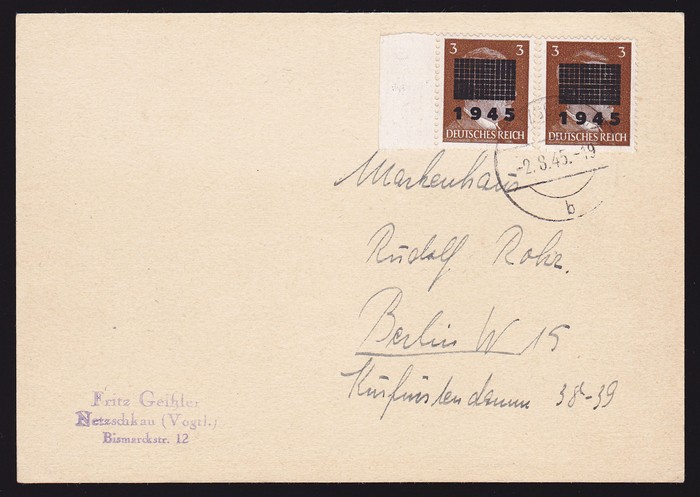 3 3 3 3
1945 1945
DEUTSCHES REICH DEUTSCHES REICH
-2.8.45.-19
b
Markenhaus
Rudolf Rohr.
Berlin W 15
Kurfürstendamm 38-39
Fritz Geißler
Netzschkau (Vogtl.)
Bismarckstr. 12